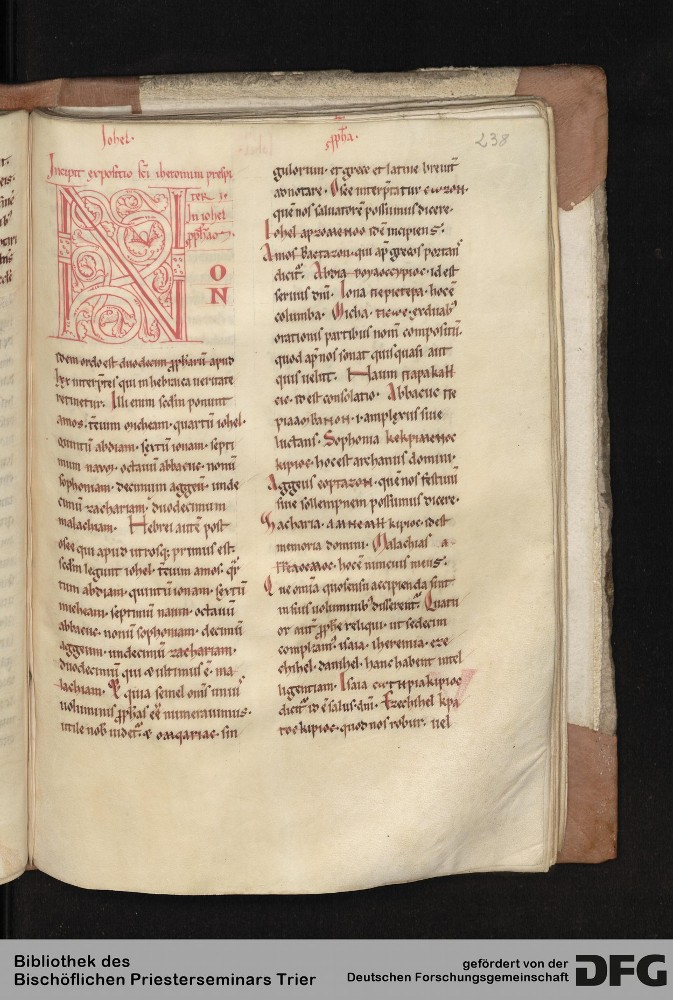 Iohel· ·ppħa·
238
Incipit expositio sc̄i iheronimi prespi
TER I·
In iohel
ꝓpħ̄am·
NON
idem ordo est duodecim ꝓpharū apud
lxx interp̄tes qui in hebraica ueritate
retinetur. Illi enim scd̄m ponunt
amos· t̄cium micheam· quartū iohel·
quintū abdiam· sextū ionam· septi
mum naum· octauū abbacuc· nonū
sophoniam· decimum aggeū· unde
cimū zachariam· duodecimum
malachiam· Hebrei autē post
osee qui apud utrosq; primus est·
scd̄m legunt iohel· t̄cium amos· qr̄
tum abdiam· quintū ionam· sextū
micheam· septimū naum· octauū
abbacuc· nonū sophoniam· decimū
aggeum· undecimū zachariam·
duodecimū qui & ultimus ē· ma
lachiam· Et quia semel omīs unius
uoluminis ꝓphas eē̄ numerauimus·
utile nob̄ uidet᷒· & omqariae· sin
gulorum· et grece et latine breuit̄
adnotare· Osee interp̄tatur cωzων·
quē nos saluatorē possumus dicere·
Iohel apxomenoc idē incipiens·
Amos bactazon· qui ap̄ grecos portans
dicit᷒. Abdia δουλοccyrιoc· id est
seruus dn̄i. Iona περιcτερα· hoc ē
columba. Micha· τιcωc· ex duab᷒
orationis partibus nom̄ compositū·
quod ap̄ nos sonat quis quasi aut
quis uelut. Naum παρακλη
cιc· id est consolatio. Abbacuc πε
ριλαμβανων· i· amplexus siue
luctans. Sophonia κεκρυμενοc
κιριοc· hoc est archanus domini·
Aggeus εορταzων· quē nos festiuū
siue sollempnem possumus dicere·
Zacharia· αμνεμη κιριοc· id est
memoria domini. Malachias α
γγελοcμοc· hoc ē nuncius meus·
Que om̄ia quo sensu accipienda sint
in suis uoluminib᷒ disserent᷒. Quatu
or aut̄ ꝓphe reliqui· ut sedecim
compleant᷒· isaia· iheremia· eze
chihel· danihel· hanc habent intel
ligentiam. Isaia cωτηρια κιριοc
dicit᷒ id ē salus dn̄i· Ezechihel κρα
τοc κιριοc· quod nos robur· uel
Bibliothek des
Bischöflichen Priesterseminars Trier
gefördert von der
Deutschen Forschungsgemeinschaft
DFG